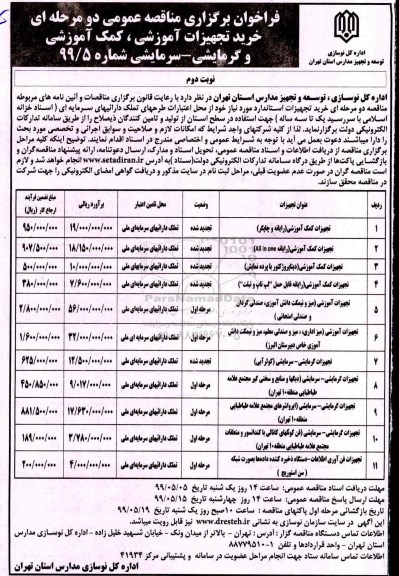 فراخوان برگزاری مناقصه عمومی دو مرحله ای
خرید تجهیزات آموزشی ، کمک آموزشی
و گرمایشی-سرمایشی شماره ۹۹/۵
اداره کل نوسازی
توسعه و تجهیز مدارس استان تهران
نوبت دوم
اداره کل نوسازی ، توسعه و تجهیز مدارس استان تهران در نظر دارد با رعایت قانون برگزاری مناقصات و آئین نامه های مربوطه
مناقصه دو مرحله ای خرید تجهیزات استاندارد مورد نیاز خود از محل اعتبارات طرحهای تملک دارائیهای سرمایه ای ( اسناد خزانه
اسلامی با سررسید یک تا سه ساله ) جهت استفاده در سطح استان از تولید و تامین کنندگان ذیصلاح را از طریق سامانه تدارکات
الکترونیکی دولت برگزار نماید. لذا از کلیه شرکتهای واجد شرایط که امکانات لازم و صلاحیت و سوابق اجرائی و تخصصی مورد بحث
را دارا میباشند دعوت بعمل می آید با توجه به شرایط عمومی و اختصاصی مندرج در اسناد اقدام نمایند. توضیح اینکه کلیه مراحل
برگزاری مناقصه از دریافت اطلاعات و اسناد مناقصه عمومی، تحویل اسناد و مدارک، ارسال دعوتنامه، ارائه پیشنهاد مناقصه گران و
بازگشایی پاکت‌ها از طریق درگاه سامانه تدارکات الکترونیکی دولت(ستاد)به آدرس www.setadiran.ir انجام خواهد شد و لازم
است مناقصه گران در صورت عدم عضویت قبلی، مراحل ثبت نام در سایت مذکور و دریافت گواهی امضای الکترونیکی را جهت شرکت
در مناقصه محقق سازند.
ردیف عنوان تجهیزات وضعیت محل تامین اعتبار برآورد ریالی مبلغ تضمین فرآیند ارجاع کار (ریال)
۱ تجهیزات کمک آموزشی(رایانه و چاپگر) تجدید شده تملک دارائیهای سرمایه‌ای ملی ۱۹/۰۰۰/۰۰۰/۰۰۰ ۹۵۰/۰۰۰/۰۰۰
۲ تجهیزات کمک آموزشی(رایانه All in one) تجدید شده تملک دارائیهای سرمایه‌ای ملی ۱۸/۱۵۰/۰۰۰/۰۰۰ ۹۰۷/۵۰۰/۰۰۰
۳ تجهیزات کمک آموزشی(دیتاپروژکتور با پرده نمایش) تجدید شده تملک دارائیهای سرمایه‌ای ملی ۱۰/۰۰۰/۰۰۰/۰۰۰ ۵۰۰/۰۰۰/۰۰۰
۴ تجهیزات کمک آموزشی(رایانه قابل حمل "لپ تاپ و تبلت") تجدید شده تملک دارائیهای سرمایه‌ای ملی ۷/۶۰۰/۰۰۰/۰۰۰ ۳۸۰/۰۰۰/۰۰۰
۵ تجهیزات آموزشی (میز و نیمکت دانش آموزی، صندلی گردان و صندلی امتحانی ) مرحله اول تملک دارائیهای سرمایه‌ای ملی ۵۶/۰۰۰/۰۰۰/۰۰۰ ۲/۸۰۰/۰۰۰/۰۰۰
۶ تجهیزات آموزشی (میز اداری، میز و صندلی معلم، میز و نیمکت دانش آموزی خاص دبیرستان البرز) مرحله اول تملک دارائیهای سرمایه‌ای ملی ۳۲/۰۰۰/۰۰۰/۰۰۰ ۱/۶۰۰/۰۰۰/۰۰۰
۷ تجهیزات گرمایشی- سرمایشی (کولرآبی) تجدید شده تملک دارائیهای سرمایه‌ای ملی ۱۲/۵۰۰/۰۰۰/۰۰۰ ۶۲۵/۰۰۰/۰۰۰
۸ تجهیزات گرمایشی- سرمایشی (دیگها و منابع و سختی گیر مجتمع علامه طباطبایی منطقه ۱۰ تهران) مرحله اول تملک دارائیهای سرمایه‌ای ملی ۹/۰۱۷/۰۰۰/۰۰۰ ۴۵۰/۸۵۰/۰۰۰
۹ تجهیزات گرمایشی- سرمایشی (ایرواشرهای مجتمع علامه طباطبایی منطقه ۱۰ تهران) مرحله اول تملک دارائیهای سرمایه‌ای ملی ۱۷/۶۳۰/۰۰۰/۰۰۰ ۸۸۱/۵۰۰/۰۰۰
۱۰ تجهیزات گرمایشی- سرمایشی (فن کویلهای کانالی با کندانسور و متعلقات مجتمع علامه طباطبایی منطقه ۱۰ تهران) مرحله اول تملک دارائیهای سرمایه‌ای ملی ۳/۷۸۰/۰۰۰/۰۰۰ ۱۸۹/۰۰۰/۰۰۰
۱۱ تجهیزات فن آوری اطلاعات-دستگاه ذخیره کننده داده‌ها بصورت شبکه ( سن استوریج ) مرحله اول تملک دارائیهای سرمایه‌ای ملی ۴/۰۰۰/۰۰۰/۰۰۰ ۲۰۰/۰۰۰/۰۰۰
مهلت دریافت اسناد مناقصه عمومی: ساعت ۱۴ روز یک شنبه تاریخ ۹۹/۰۵/۰۵
مهلت ارسال پاسخ مناقصه عمومی: ساعت ۱۴ روز چهارشنبه تاریخ ۹۹/۰۵/۱۵
تاریخ بازگشائی مرحله اول پاکتهای مناقصه : ساعت ۱۰صبح روز یک شنبه تاریخ ۹۹/۰۵/۱۹
این آگهی در وب سایت سازمان نوسازی به نشانی www.dresteh.ir نیز قابل رویت میباشد.
اطلاعات تماس دستگاه مناقصه گزار : آدرس : تهران - بالاتر از میدان ونک - خیابان شهید خلیل زاده - اداره کل نوسازی مدارس
استان تهران - واحد قراردادها و تلفن ۱-۸۸۷۷۹۵۱۰
اطلاعات تماس سامانه ستاد جهت انجام مراحل عضویت در سامانه و پشتیبانی مرکز ۴۱۹۳۴
اداره کل نوسازی مدارس استان تهران